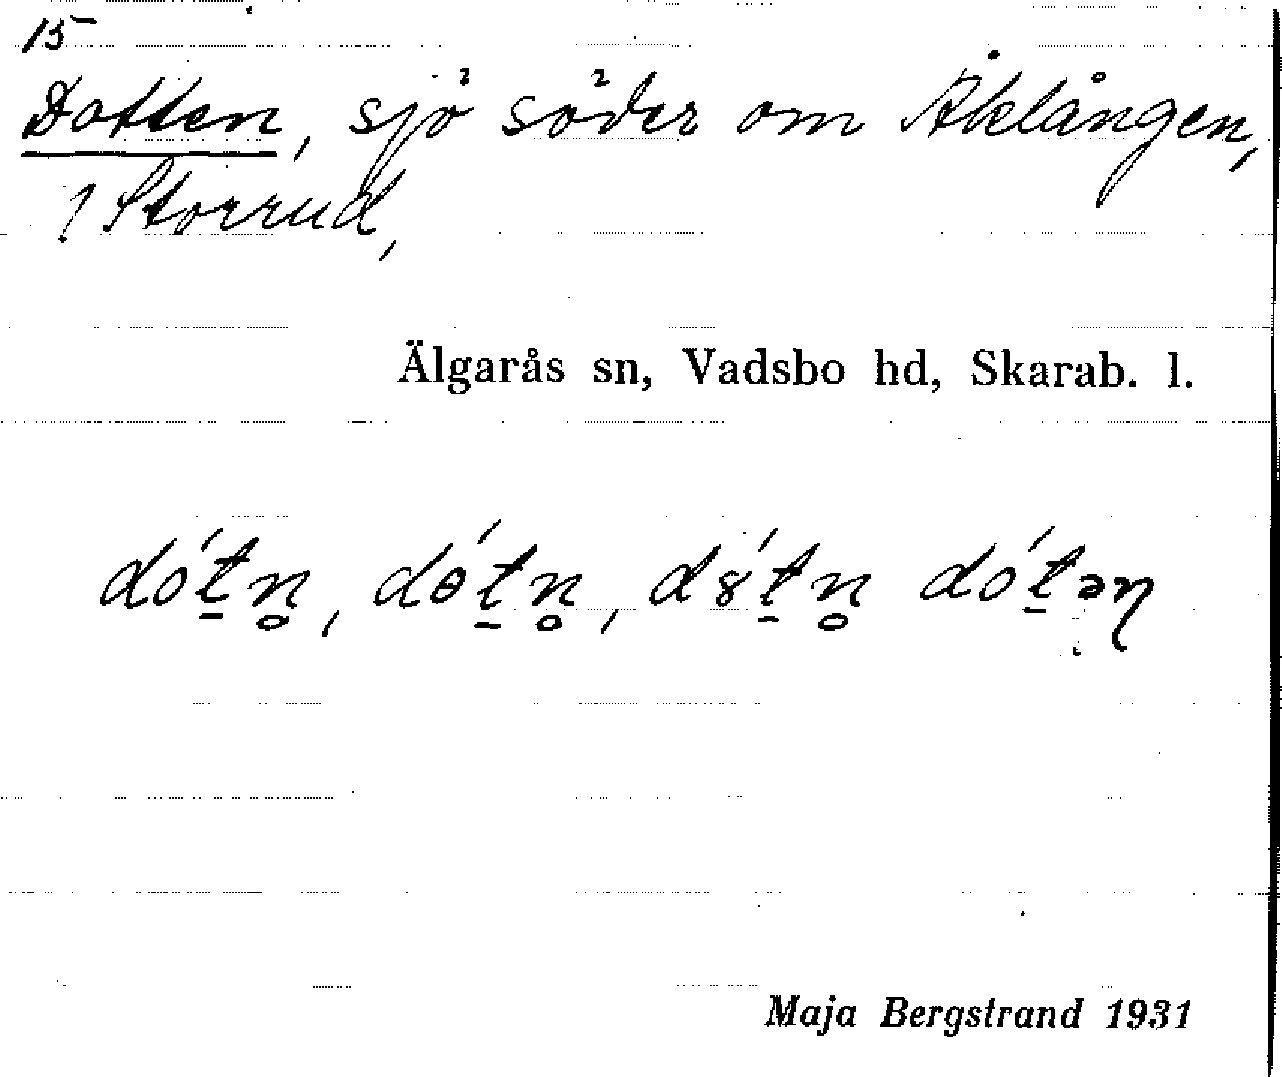 15
Dotten, sjö söder om Åklången,
? Storrud,
Älgarås sn, Vadsbo hd, Skarab. l.
dót̠n̥, dɵ́t̠n̥, d8́t̠n̥ dót̠əƞ
Maja Bergstrand 1931